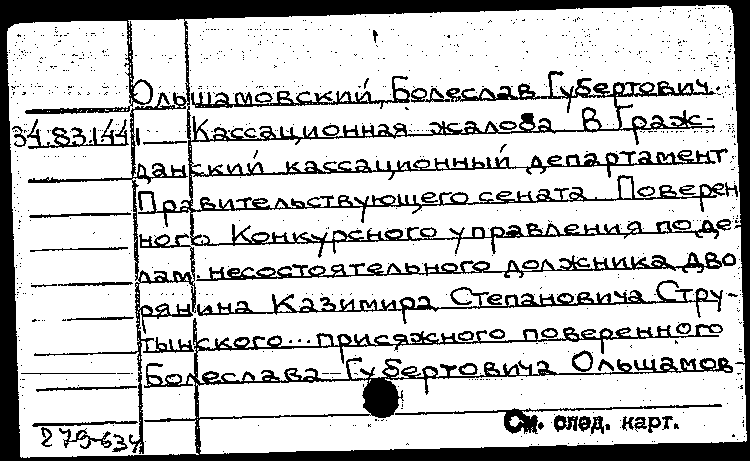 Ольшамовский, Болеслав Губертович.
34.83.144 Кассационная жалоба в Граж-
данский кассационный департамент
Правительствующего сената. Поверен
ного Конкурсного управления по де-
лам несостоятельного должника дво
рянина Казимира Степановича Стру-
тынского... присяжного поверенного
Болеслава Губертовича Ольшамов-
См. след. карт.
279-634